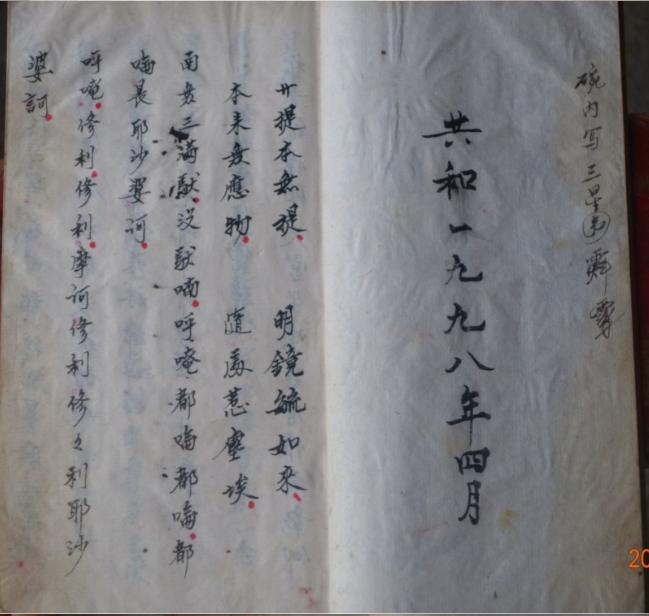 碗内写三星
共和一九九八年四月
廿提本無提 明鏡毓如來
本来無應物 隨處惹塵埃
南無三滿馱没馱喃呼唵都啮都啮都
啮晨耶沙婆訶
呼唵修利修利摩訶修利修々利耶沙
婆訶
20